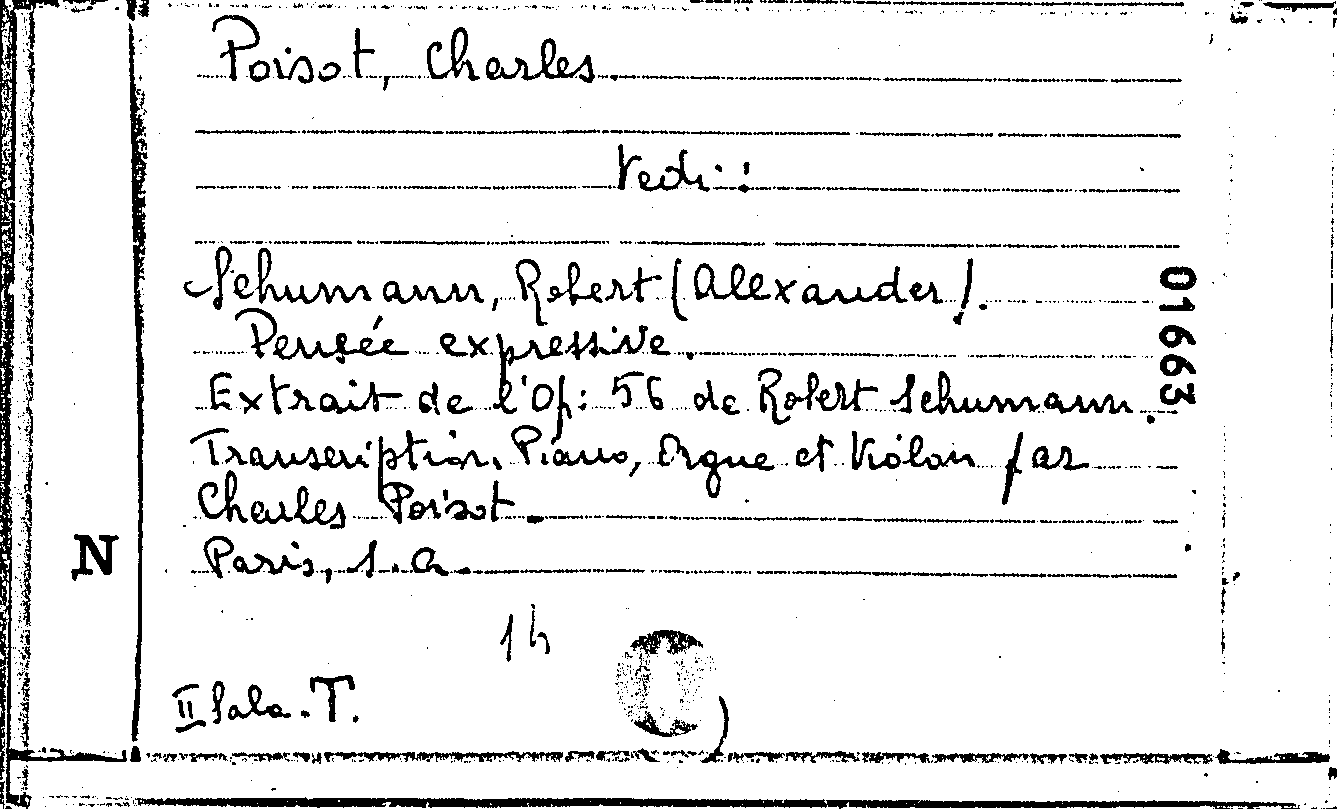 Poisot, Charles.
Vedi:
Schumann, Robert (Alexander).
Pensée expressive.
Extrait de l'Op: 56 de Robert Schumann.
Transcription. Piano, Orgue et Violon par
Charles Poisot.
Paris, s.a.
01663
N
14
II Sala. T.